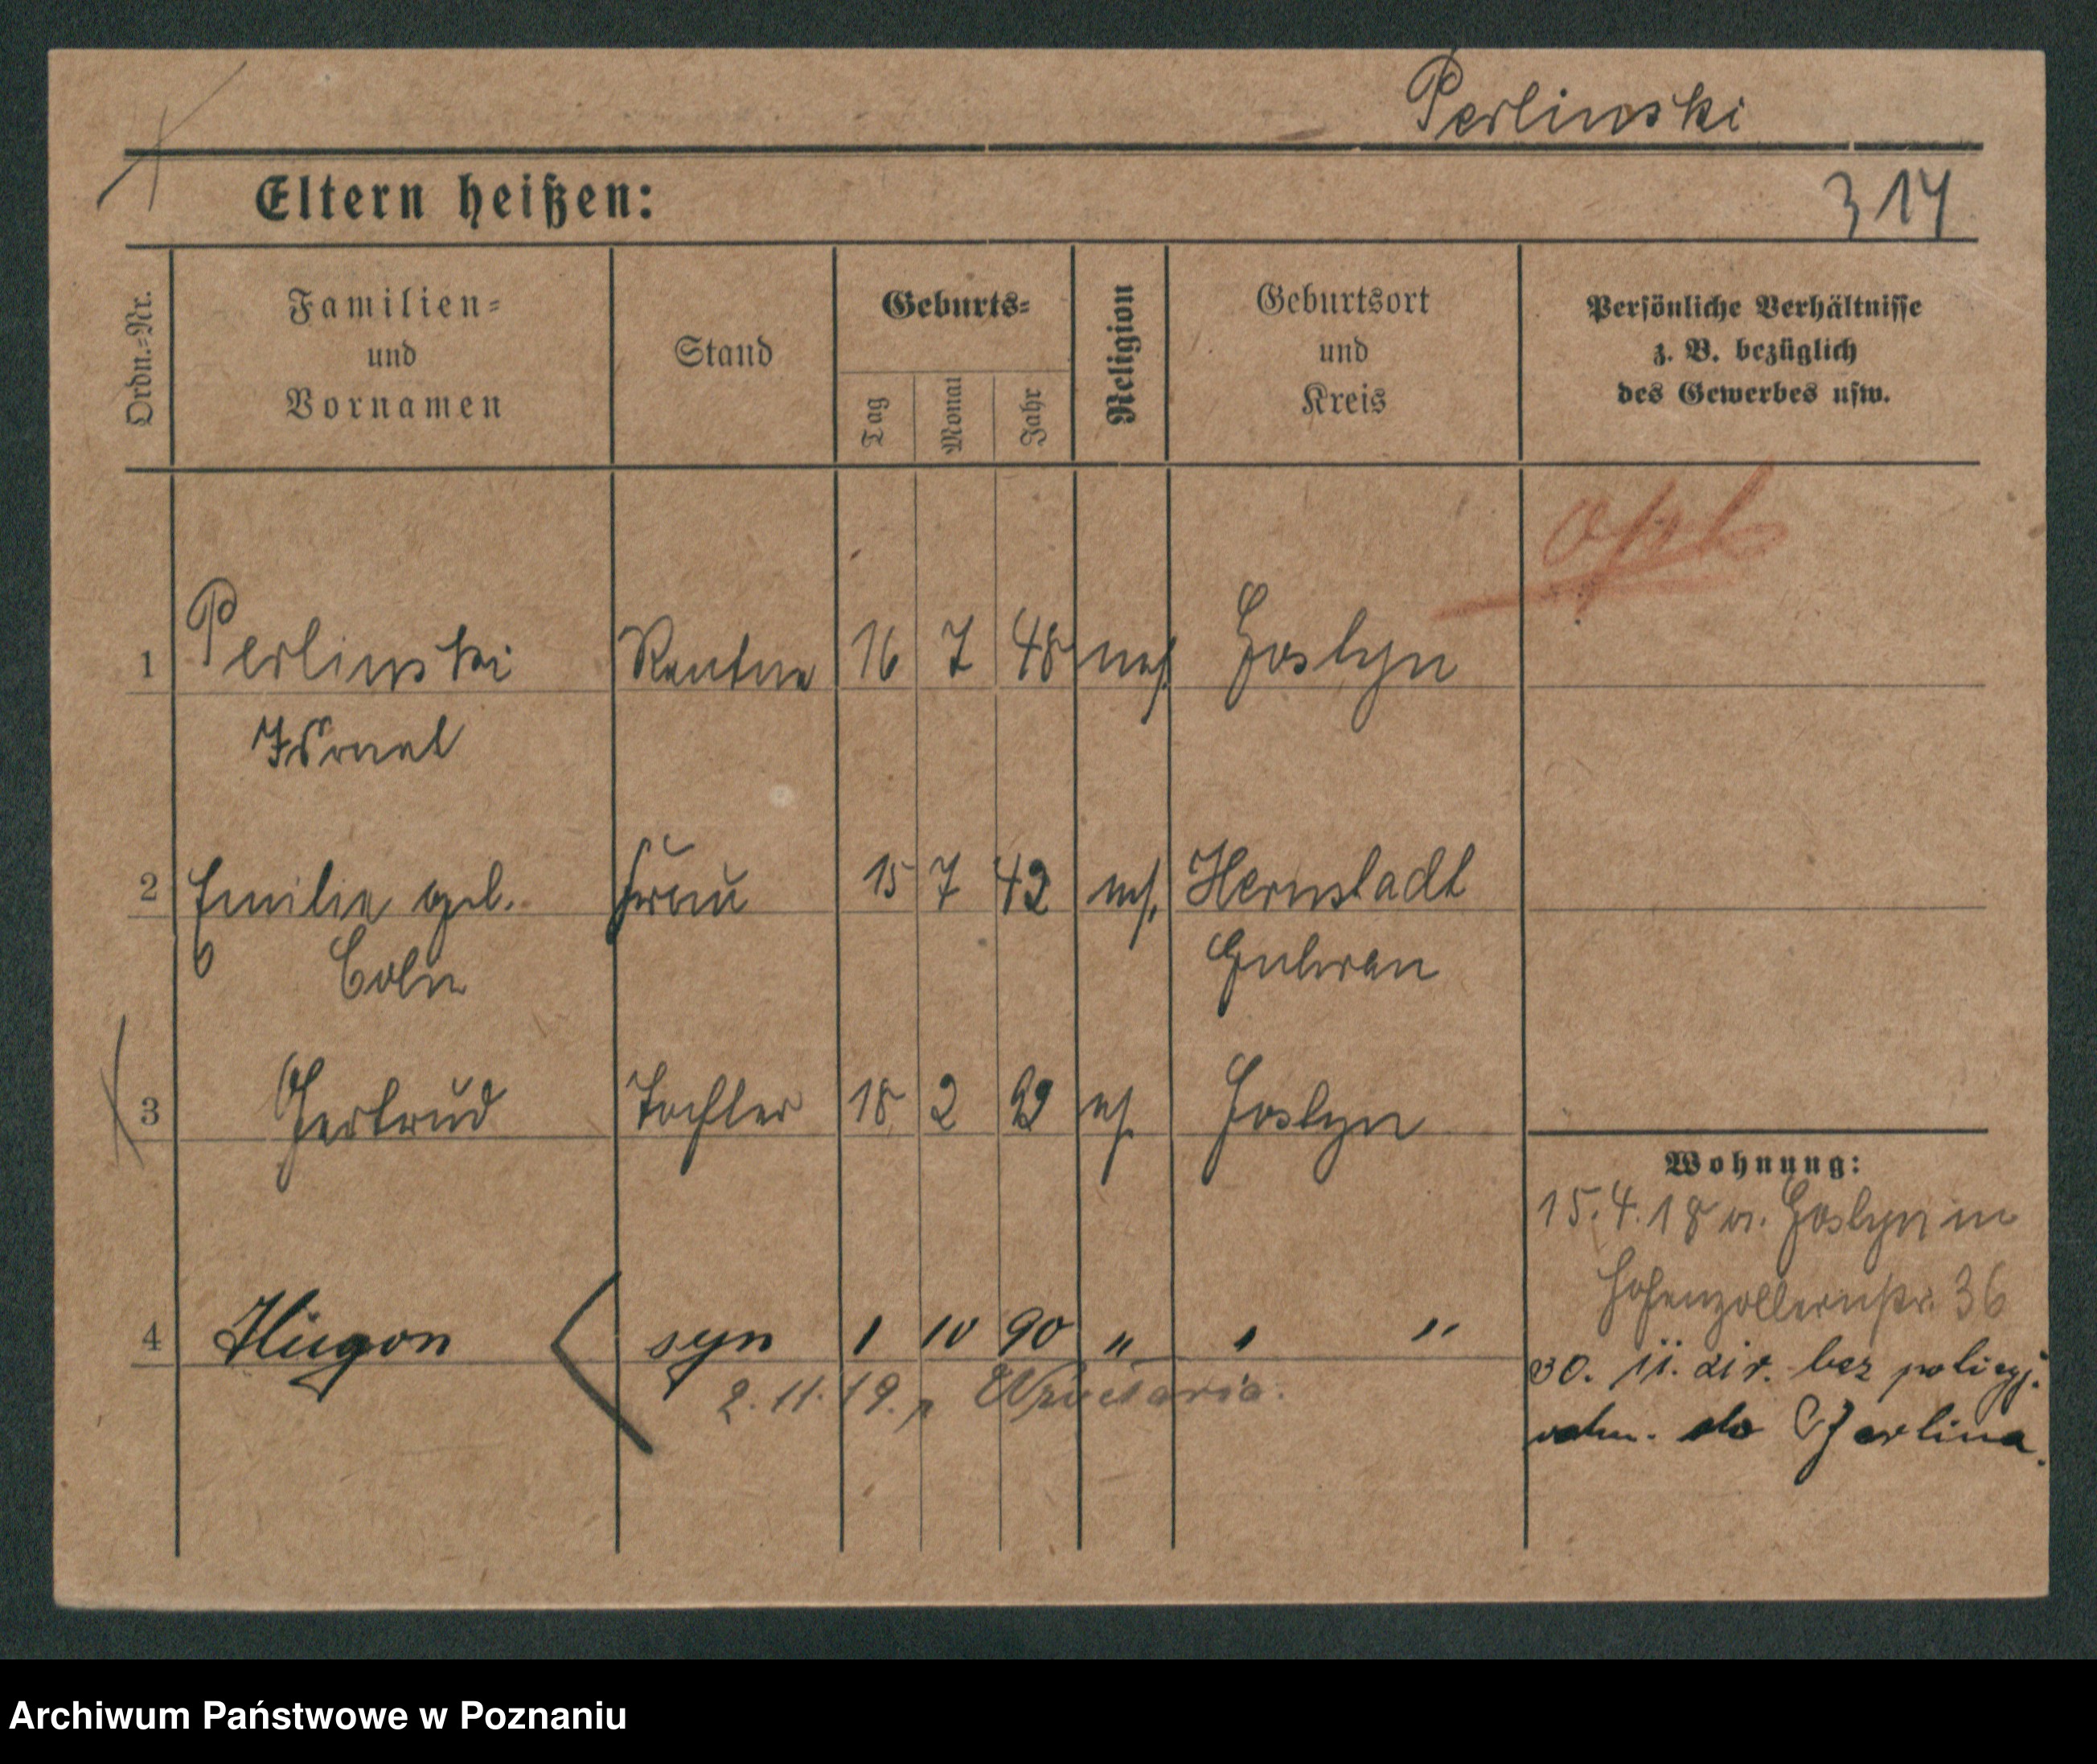 Perlinski
314
Eltern heißen:
Ordn.-Nr.
Familien-
und
Vornamen
Stand
Geburts-
Tag
Monat
Jahr
Religion
Geburtsort
und
Kreis
Persönliche Verhältnisse
z. B. bezüglich
des Gewerbes usw.
1 Perlinski Rentner 16 7 48 mos. Gostyn
Israel
2 Emilie geb. Frau 15 7 42 mos. Herrnstadt
Cohn Guhrau
3 Gertrud Tochter 18 2 82 mos. Gostyn
Wohnung:
15.4.18 v. Gostyn in
Hohenzollernstr. 36
4 Hugon syn 1 10 90 " " "
2.11.19. z Wrocławia.
30. 11. bez policyj.
do Berlina.